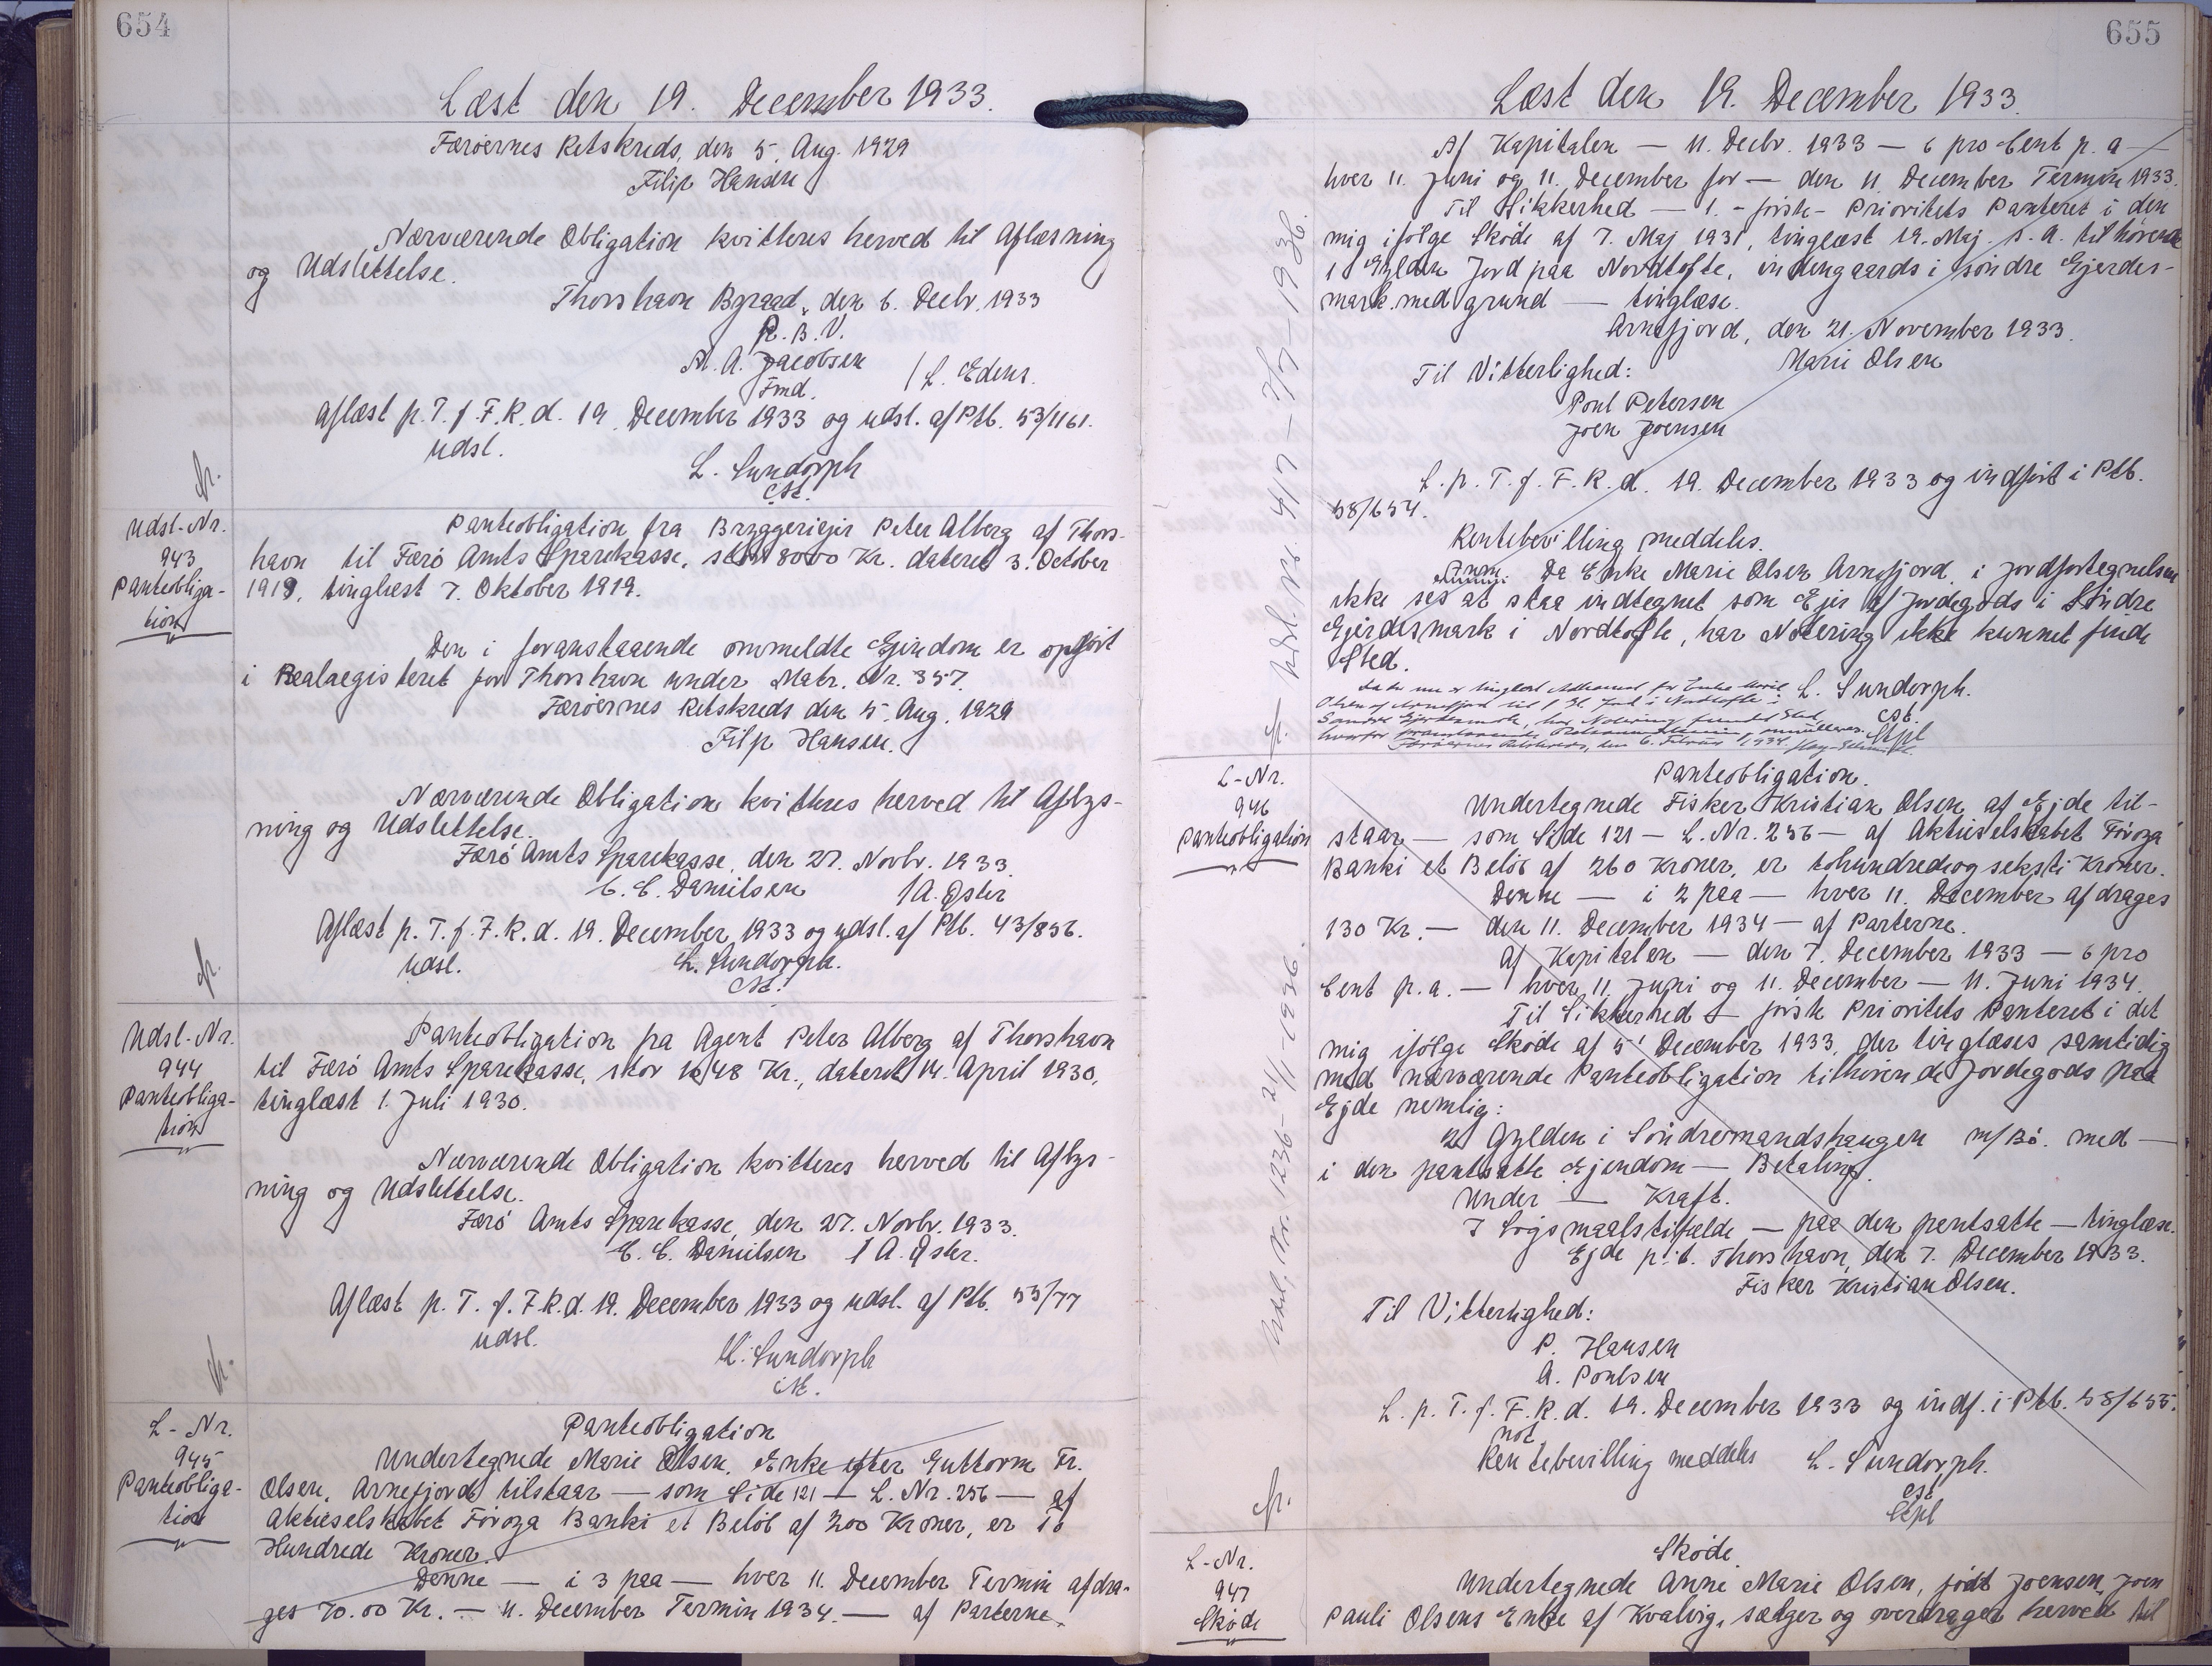 654
Læst den 19. December 1933.
Færøernes Retskreds, den 5. Aug. 1929
Filip Hansen
Nærværende Obligation kvitteres herved til Aflæsning
og Udslettelse.
Thorshavn Byraad, den 6. Decbr. 1933
P. B. V.
M. A. Jacobsen
Fmd.
/ L. Edens.
Aflæst p. T. f. F. R. d. 19. December 1933 og udsl. af Ptb. 53/1161.
Udsl.
L. Sundorph
cst.
Udsl-Nr.
943
Panteobliga-
tion
Panteobligation fra Bryggeriejer Peter Alberg af Thors-
havn til Færø Amts Sparekasse, stor 8000 Kr. dateret 3. October
1919, tinglæst 7. Oktober 1919.
Den i foranstaaende ommeldte Ejendom er opført
i Realregisteret for Thorshavn under Matr. Nr. 357.
Færøernes Retskreds den 5. Aug. 1929
Filip Hansen.
Nærværende Obligation kvitteres herved til Aflys-
ning og Udslettelse.
Færø Amts Sparekasse, den 27. Novbr. 1933.
C. C. Danielsen / A. Øster
Aflæst p. T. f. F. R. d. 19. December 1933 og udsl. af Ptb. 43/836.
Udsl.
L. Sundorph.
cst.
Udsl-Nr.
944
Panteobliga-
tion
Panteobligation fra Agent Peter Alberg af Thorshavn
til Færø Amts Sparekasse, stor 1648 Kr., dateret 14. April 1930,
tinglæst 1. Juli 1930.
Nærværende Obligation kvitteres herved til Aflys-
ning og Udslettelse.
Færø Amts Sparekasse, den 27. Novbr. 1933.
C. C. Danielsen / A. Øster.
Aflæst p. T. f. F. R. d. 19. December 1933 og udsl. af Ptb. 53/77
Udsl.
L. Sundorph
cst.
L-Nr.
945
Panteobliga-
tion
Panteobligation
Undertegnede Marie Olsen, Enke efter Guttorm Fr.
Olsen, Arnefjord tilstaar — som Side 121 — L. Nr. 256 — af
Aktieselskabet Føroya Banki et Beløb af 200 Kroner, er To
Hundrede Kroner.
Denne — i 3 paa — hver 11. December Termin afdra-
ges 70.00 Kr. — 11. December Termin 1934. — af Parterne.
655
Læst den 19. December 1933.
Af Kapitalen — 11. Decbr. 1933 — 6 pro Cent p. a —
hver 11. Juni og 11. December for — den 11. December Termin 1933.
Til Sikkerhed — 1. - første - Prioritets Panteret i den
mig ifølge Skøde af 7. Maj 1931, tinglæst 19. Maj s. A. tilhørende
1 Gylden Jord paa Nordtofte, indengaards i søndre Gjerdes-
mark med grund — tinglæse.
Arnefjord, den 21. November 1933.
Marie Olsen
Til Vitterlighed:
Poul Petersen
Joen Joensen
L. p. T. f. F. R. d. 19. December 1933 og indført i Ptb.
58/654.
Rentebevilling meddeles.
Anm. Da Enke Marie Olsen Arnefjord, i Jordfortegnelsen
ikke ses at staa indtegnet som Ejer af Jordegods i Søndre
Gjerdesmark i Nordtofte, har Notering ikke kunnet finde
Sted.
L. Sundorph.
cst.
Stpl
Da der nu er tinglæst Adkomst for Enke Marie
Olsen af Arnefjord til 1 Gl. Jord i Nordtofte i
Søndre Gjerdesmark, har Notering fundet Sted,
hvorfor foranstaaende Retsanmærkning annulleres.
Færøernes Retskreds, den 6. Februar 1934.
L-Nr.
946
Panteobligation
Panteobligation.
Undertegnede Fisker Kristian Olsen af Ejde til-
staar — som Side 121 — L. Nr. 256 — af Aktieselskabet Føroya
Banki et Beløb af 260 Kroner, er tohundredeogseksti Kroner.
Denne — i 2 paa — hver 11. December afdrages
130 Kr. — den 11. December 1934 — af Parterne.
Af Kapitalen — den 7. December 1933 — 6 pro
Cent p. a. — hver 11. Juni og 11. December — 11. Juni 1934.
Til Sikkerhed — første Prioritets Panteret i det
mig ifølge Skøde af 5' December 1933, der tinglæses samtidig
med nærværende Panteobligation tilhørende Jordegods paa
Ejde nemlig:
2 Gylden i Søndremandshaugen m/Bø. med —
i den pantsatte Ejendom — Betaling.
Under — Kraft.
I Søgsmaalstilfælde — paa den pantsatte — tinglæse.
Ejde p. t. Thorshavn, den 7. December 1933.
Fisker Kristian Olsen.
Til Vitterlighed:
P. Hansen
A. Poulsen
L. p. T. f. F. R. d. 19. December 1933 og indf. i Ptb. 58/655.
not.
Rentebevilling meddeles L. Sundorph.
cst
Stpl
L-Nr.
947
Skøde
Skøde.
Undertegnede Anne Marie Olsen, født Joensen, Joen
Pauli Olsens Enke af Kvalvig, sælger og overdrager herved til